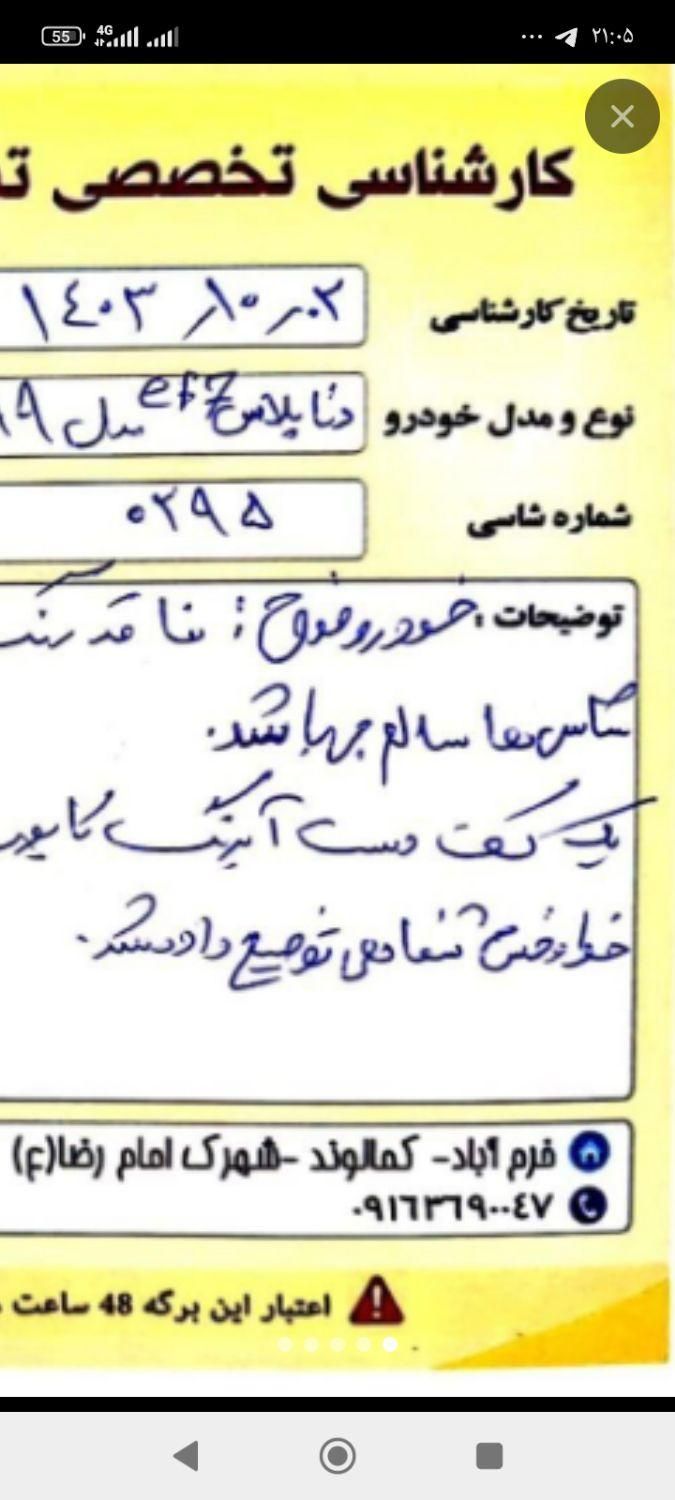 55 4G ۲۱:۰۵
کارشناسی تخصصی
تاریخ کارشناسی ۱۴۰۳/۱۰/۰۲
نوع و مدل خودرو دنا پلاس ef7 مدل
شماره شاسی ۰۲۹۵
توضیحات : خودرو فوق : فاقد رنگ
شاسی‌ها سالم میباشد.
یک کف دست آبرنگ
خط و خش توضیح داده شد.
خرم آباد- کمالوند -شهرک امام رضا(ع)
۰۹۱۶۳۶۹۰۰۴۷
اعتبار این برگه 48 ساعت